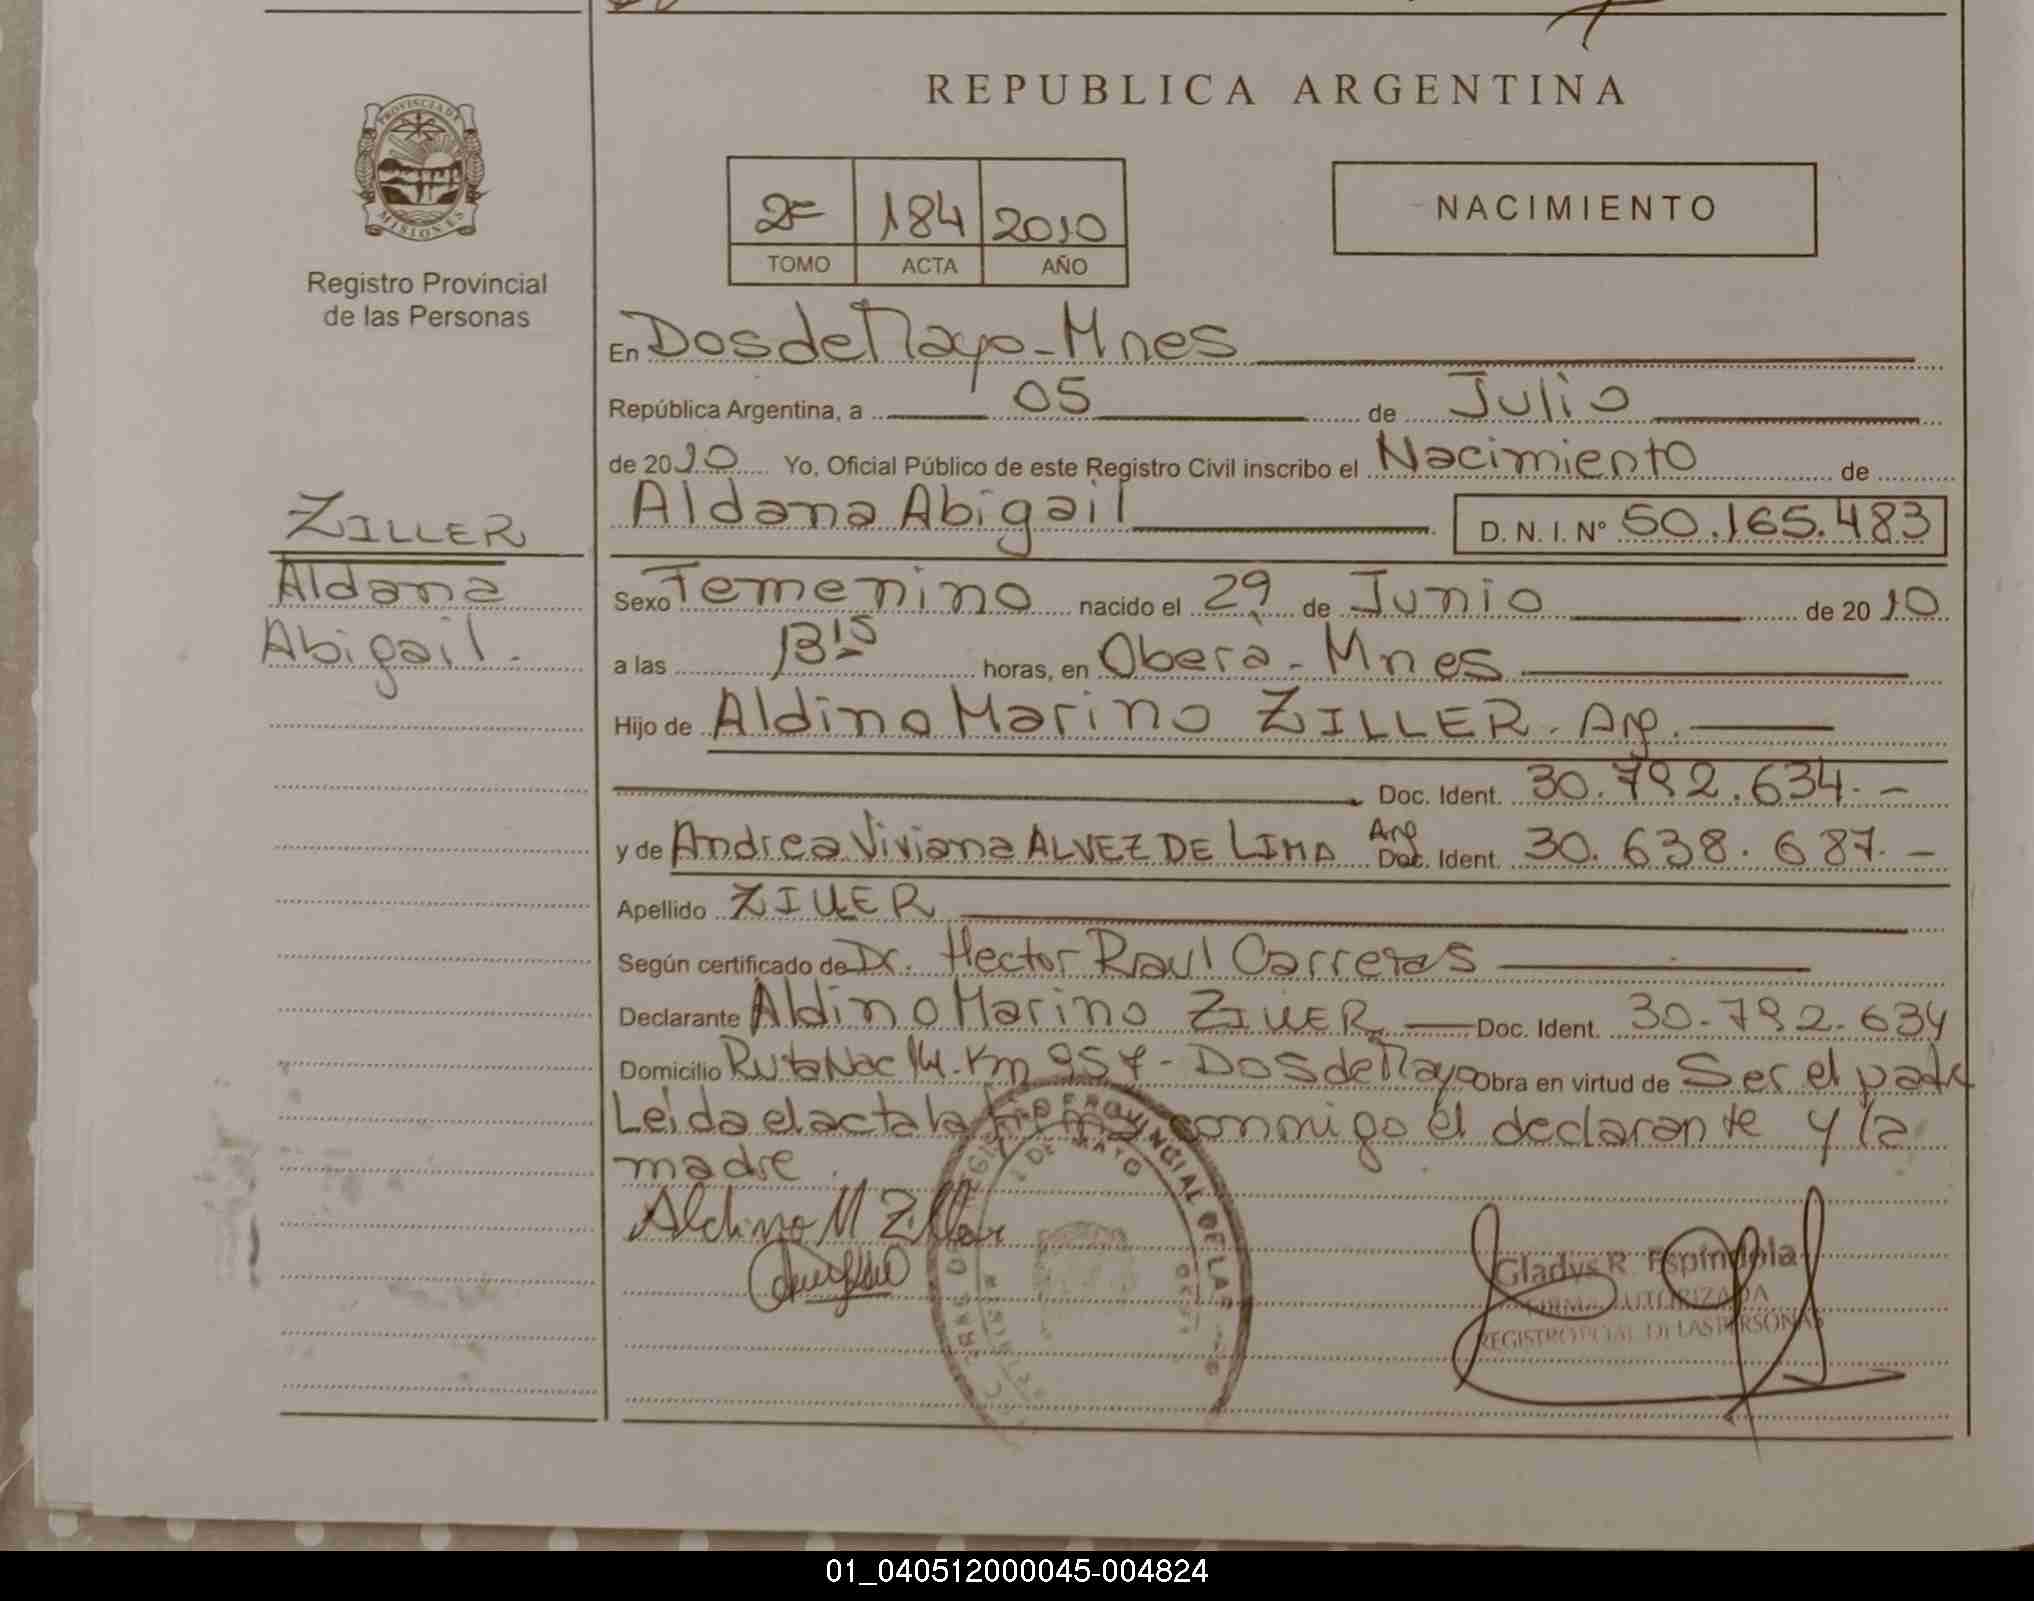 REPUBLICA ARGENTINA
PROVINCIA DE
MISIONES
Registro Provincial
de las Personas
2º 184 2010
TOMO ACTA AÑO
NACIMIENTO
En Dos de Mayo - Mnes
República Argentina, a 05 de Julio
de 2010 Yo, Oficial Público de este Registro Civil inscribo el Nacimiento de
Aldana Abigail D. N. I. Nº 50.165.483
ZILLER
Aldana
Abigail.
Sexo Femenino nacido el 29 de Junio de 2010
a las 13 15 horas, en Oberà - Mnes
Hijo de Aldino Marino ZILLER. Arg.
Doc. Ident. 30.792.634.-
y de Andrea Viviana ALVEZ DE LIMA Arg Doc. Ident. 30.638.687.-
Apellido ZILLER
Según certificado de Dr. Hector Raul Carreras
Declarante Aldino Marino ZILLER Doc. Ident. 30.792.634
Domicilio Ruta Nac 14. Km 957 - Dos de Mayo Obra en virtud de Ser el padre
Leida el acta la conmigo el declarante y la
madre.
Aldino M Ziller
PROVINCIAL DE LAS
DE MAYO
Gladys R. Espíndola
FIRMA AUTORIZADA
REGISTRO PCIAL DE LAS PERSONAS
01_040512000045-004824